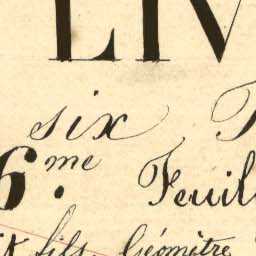 LIV
six
6.me Feuil
fils. Géomètre